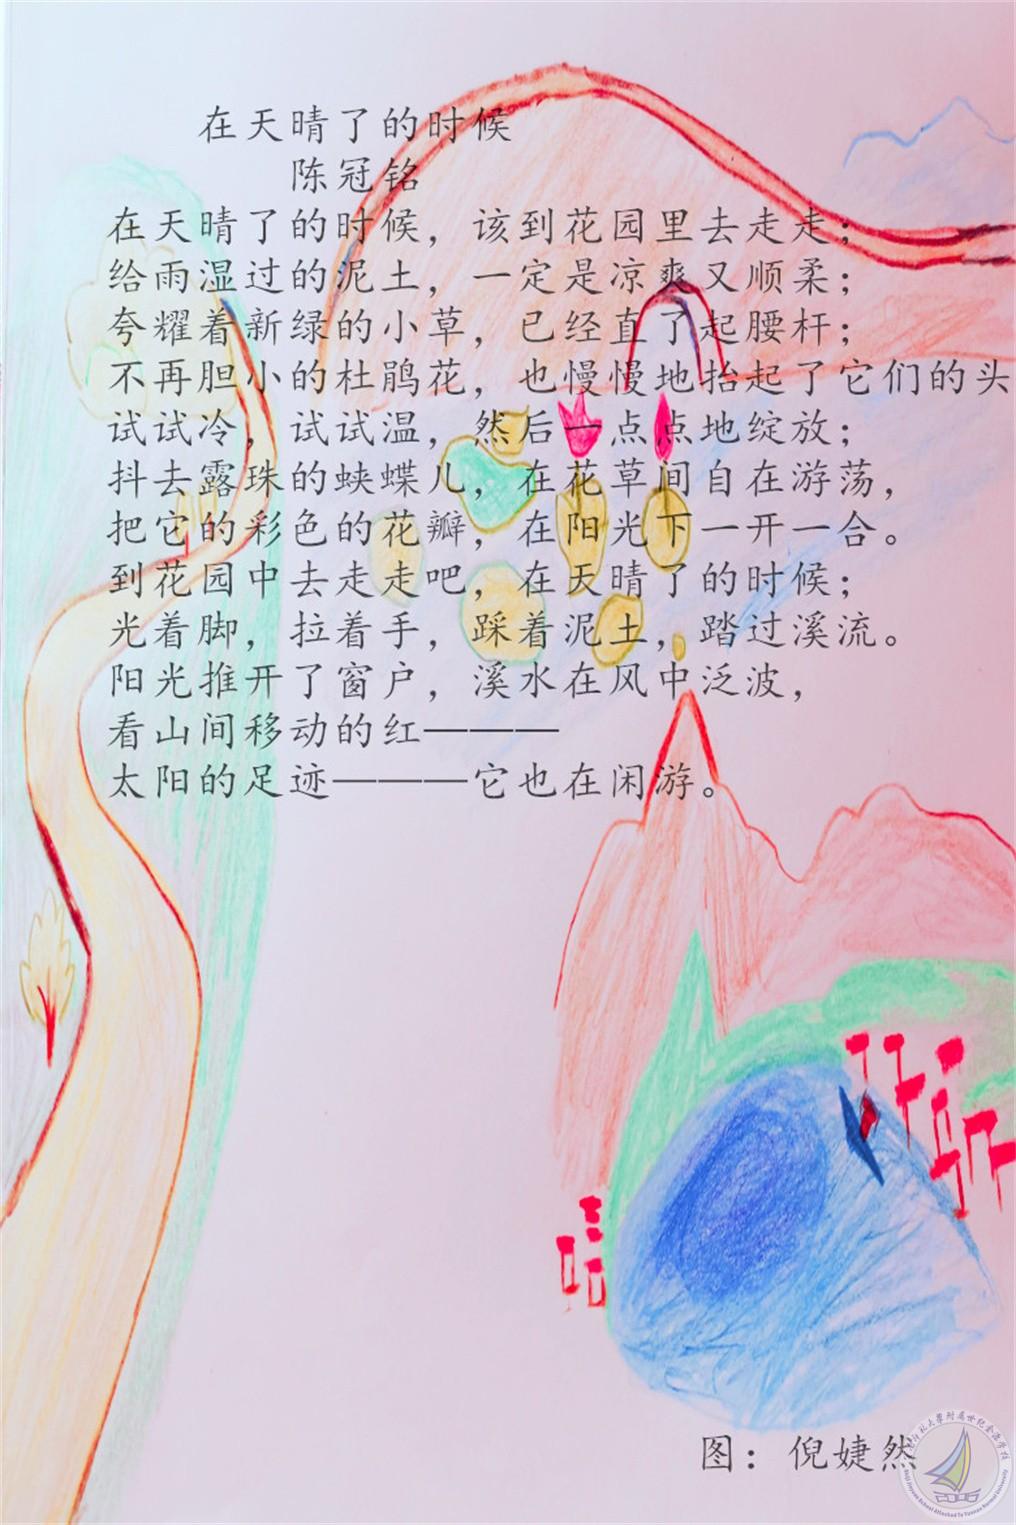 在天晴了的时候
陈冠铭
在天晴了的时候，该到花园里去走走；
给雨湿过的泥土，一定是凉爽又顺柔；
夸耀着新绿的小草，已经直了起腰杆；
不再胆小的杜鹃花，也慢慢地抬起了它们的头
试试冷，试试温，然后一点点地绽放；
抖去露珠的蛱蝶儿，在花草间自在游荡，
把它的彩色的花瓣，在阳光下一开一合。
到花园中去走走吧，在天晴了的时候；
光着脚，拉着手，踩着泥土，踏过溪流。
阳光推开了窗户，溪水在风中泛波，
看山间移动的红———
太阳的足迹———它也在闲游。
图：倪婕然